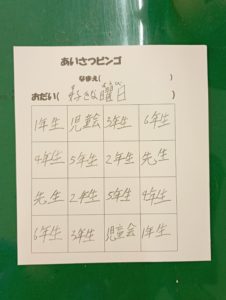 あいさつビンゴ
なまえ( )
おだい( 好きな曜日 )
1年生 児童会 3年生 6年生
4年生 5年生 2年生 先生
先生 2年生 5年生 4年生
6年生 3年生 児童会 1年生